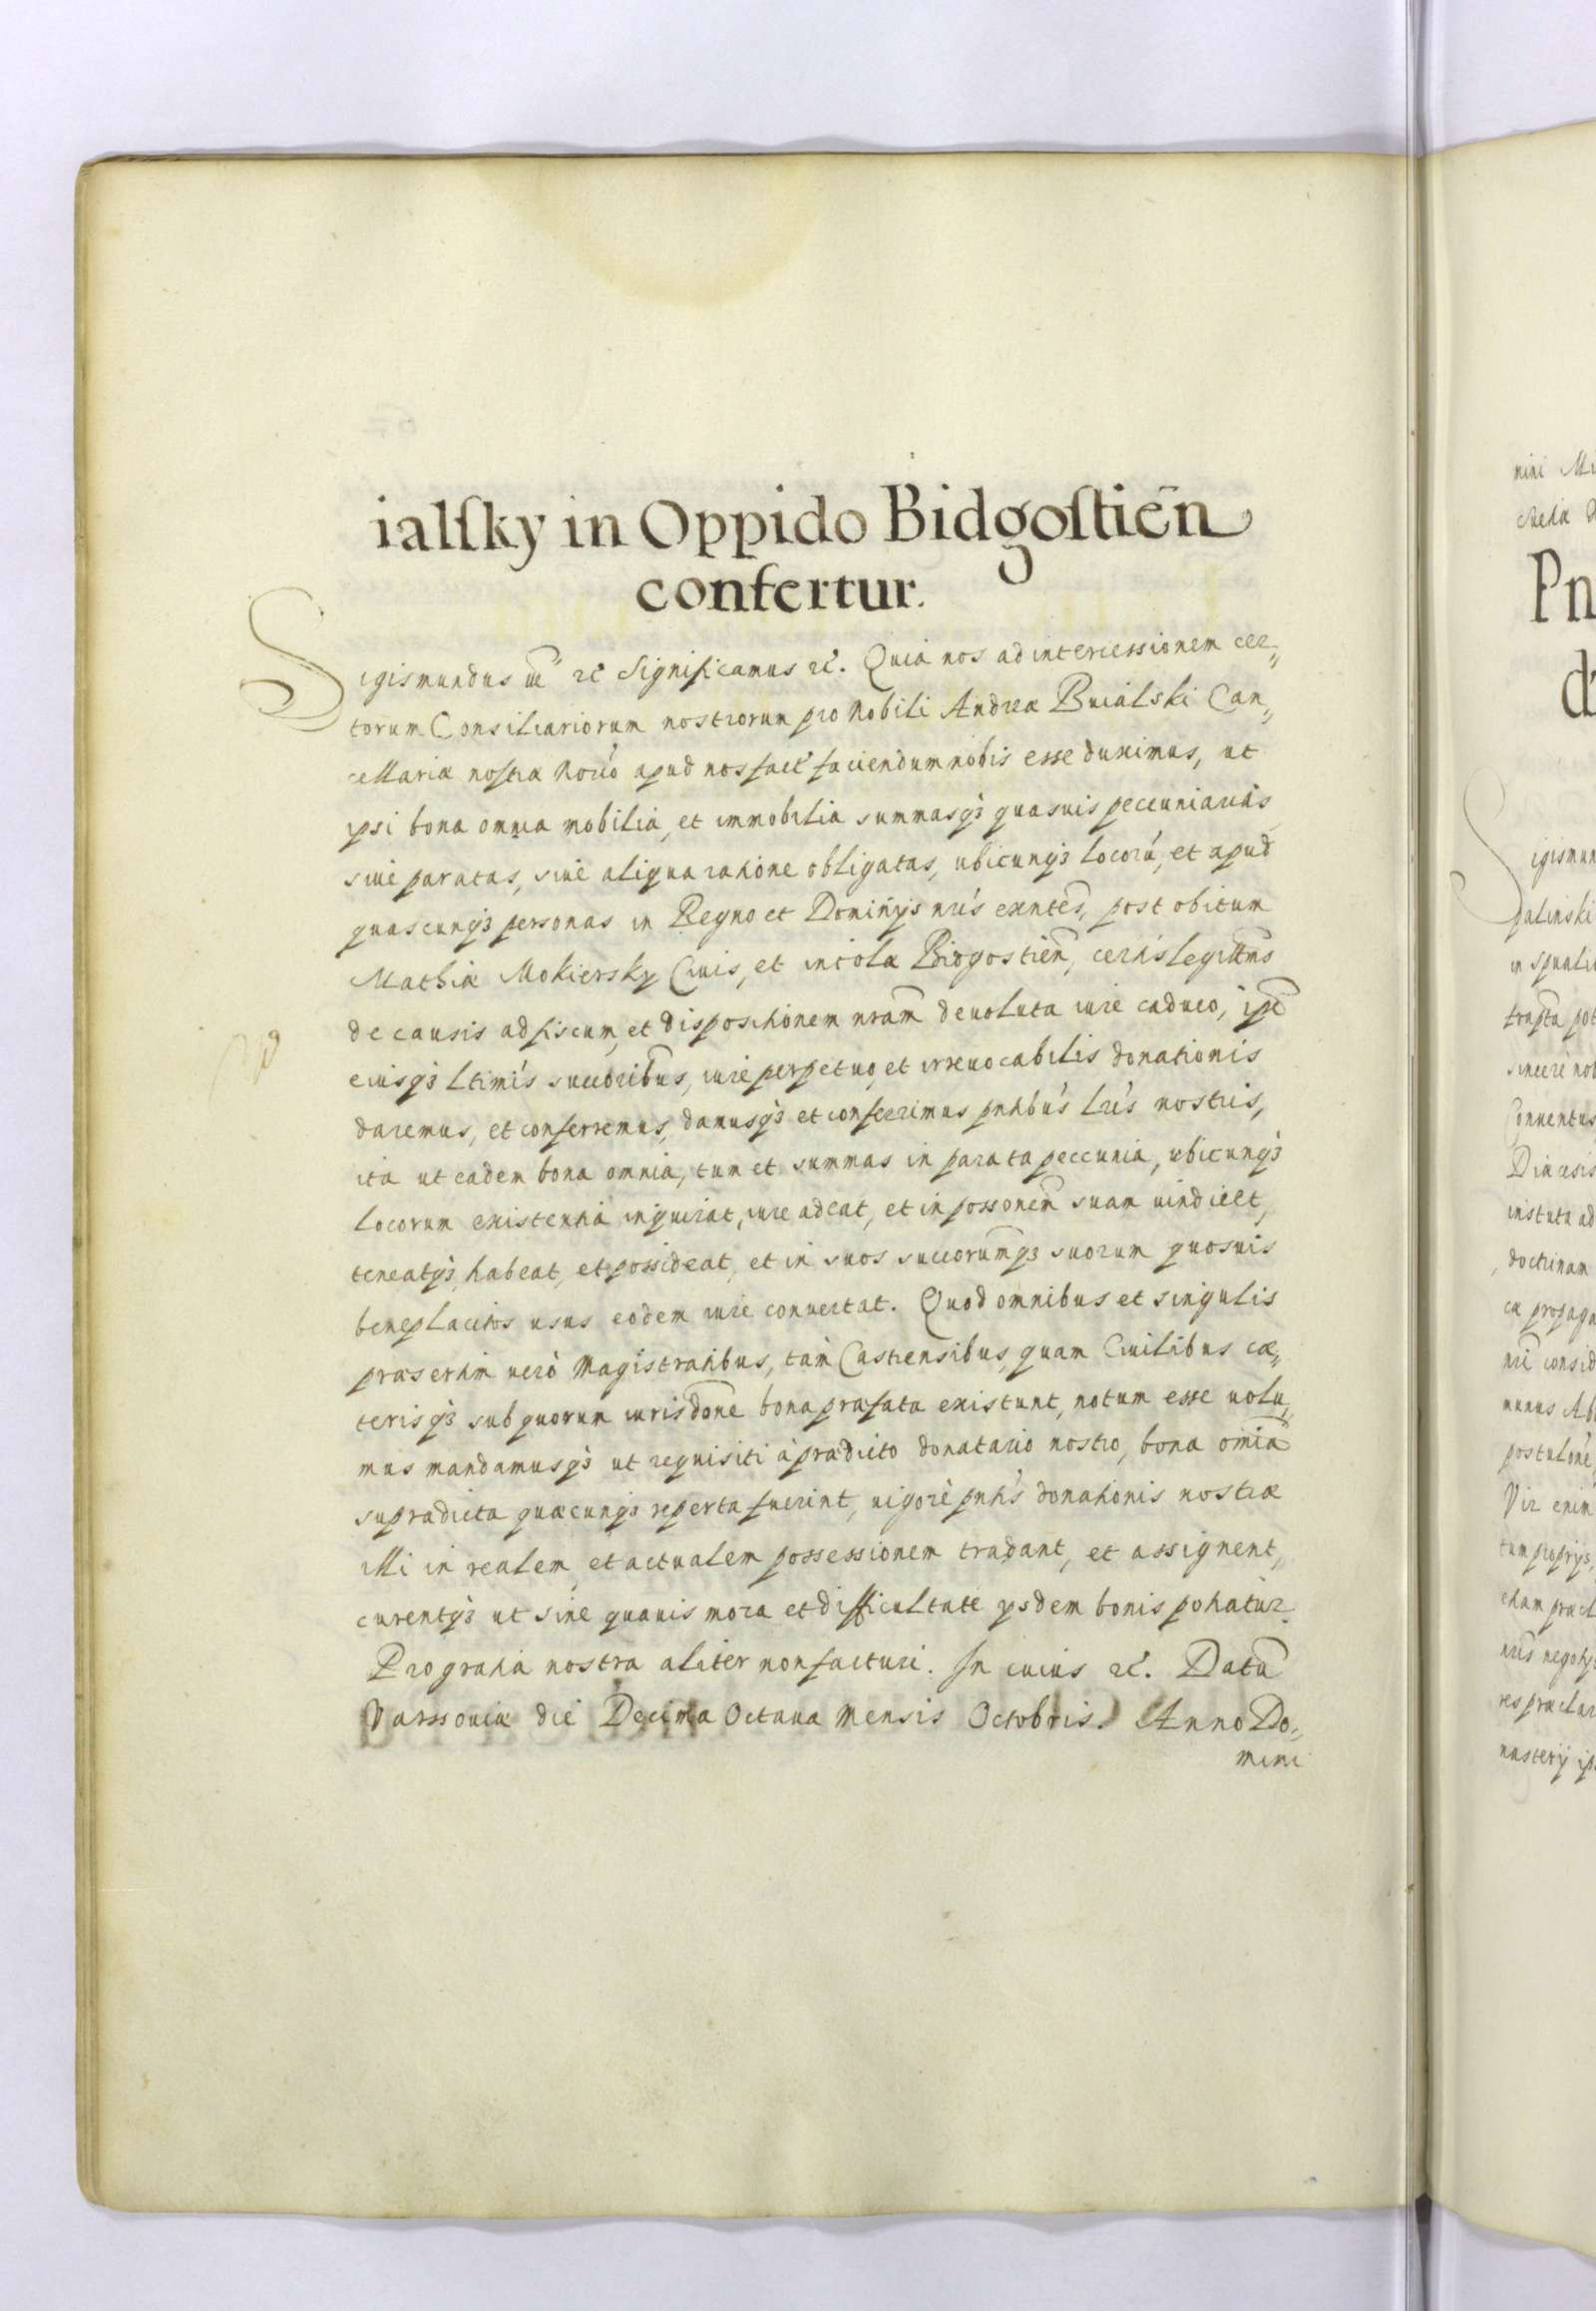 ialſky in Oppido Bidgoſtień
confertur.
Sigismundus iii꞉ ꝛc Significamus ꝛc. Quia nos ad intercessionem cer„
torum Consiliariorum nostrorum pro Nobili Andrea Buialski Can„
cellariæ nostræ Norio apud nos fact' faciendum nobis esse duximus, ut
ipsi bona omnia mobilia, et immobilia summasqꝫ quasuis peccuniarias
siue paratas, siue aliqua ratione obligatas, ubicunqꝫ locorũ, et apud
quascunqꝫ personas in Regno et Dominijs nris exntes, post obitum
Mathiæ Mokiersky Ciuis, et incolæ Bidgostien̄, certis legittimis
de causis ad fiscum, et dispositionem nram̄ deuoluta iure caduco, ipse
eiusqꝫ ltimis succoribus, iure perpetuo, et irreuocabilis donationis
daremus, et conferremus, damusqꝫ et conferimus pntibus lris nostris,
ita ut eadem bona omnia, tum et summas in parata peccunia, ubicunqꝫ
locorum existentia inquirat, iure adeat, et in possonem̄ suam uindicet,
teneatqꝫ, habeat, et possideat, et in suos succorum̄qꝫ suorum quosuis
beneplacitos usus eodem iure conuertat. Quod omnibus et singulis
præsertim uerò Magistratibus, tam Castrensibus, quam Ciuilibus cæ„
terisqꝫ sub quorum iurisdone bona præfata existunt, notum esse uolu„
mus mandamusqꝫ ut requisiti à prædicto donatario nostro, bona omia
supradicta quæcunqꝫ reperta fuerint, uigore pntis donationis nostræ
illi in realem, et actualem possessionem tradant, et assignent,
curentqꝫ ut sine quauis mora et difficultate ysdem bonis potiatur.
Pro gratia nostra aliter non facturi. In cuius ꝛc. Datũ
Varssouiæ die Decima Octaua Mensis Octobris. Anno Do„
mini